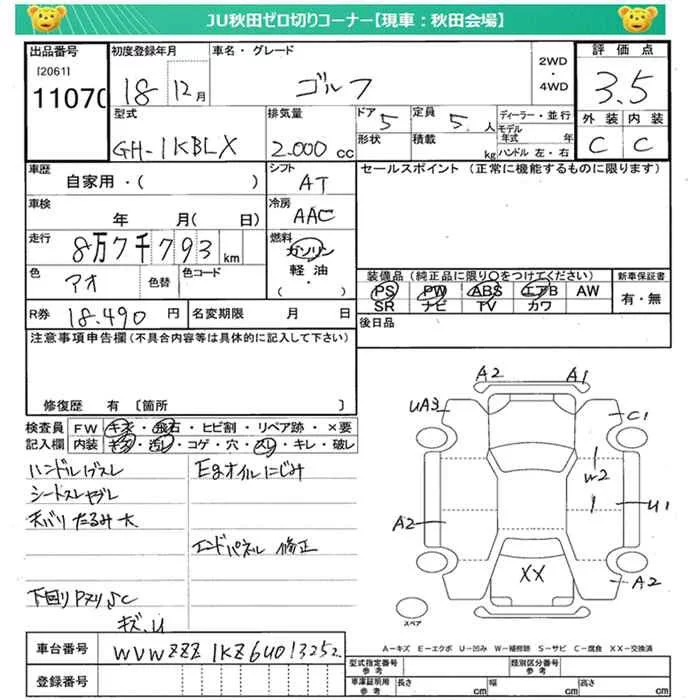 JU秋田ゼロ切りコーナー【現車：秋田会場】
出品番号
[2061]
11070
初度登録年月
18 12月
車名・グレード
ゴルフ
2WD
・
4WD
評価点
3.5
外装 内装
C C
型式
GH-1KBLX
排気量
2.000 cc
ドア 5
形状
定員 5 人
積載 kg
ディーラー・並行
モデル年式 年
ハンドル 左・右
車歴
自家用・( )
シフト
AT
セールスポイント (正常に機能するものに限ります)
車検
年 月( 日)
冷房
AAC
走行
8万7千793 km
燃料
ガソリン
軽油
( ・ )
色
アオ
色替
色コード
装備品 (純正品に限り○をつけてください)
新車保証書
PS PW ABS エアB AW
有・無
SR ナビ TV カワ
R券 18.490 円
名変期限 月 日
後日品
注意事項申告欄(不具合内容等は具体的に記入して下さい)
修復歴 有 〔箇所 〕
検査員
記入欄
FW キズ・飛石・ヒビ割・リペア跡・×要
内装 キズ・汚レ・コゲ・穴・スレ・キレ・破レ
ハンドルスレ
シートスレヤブレ
天バリ たるみ大
Egオイルにじみ
エンドパネル 修正
下回りPヌリ SC
キズ.U
A2 A1
UA3 C1
W2
A2 U1
XX
A2
スペア
A-キズ E-エクボ U-凹み W-補修跡 S-サビ C-腐食 XX-交換済
車台番号
WVWZZZ1KZ6U013252
登録番号
型式指定番号
参考
類別区分番号
参考
車庫証明用
参考
長さ cm
幅 cm
高さ cm